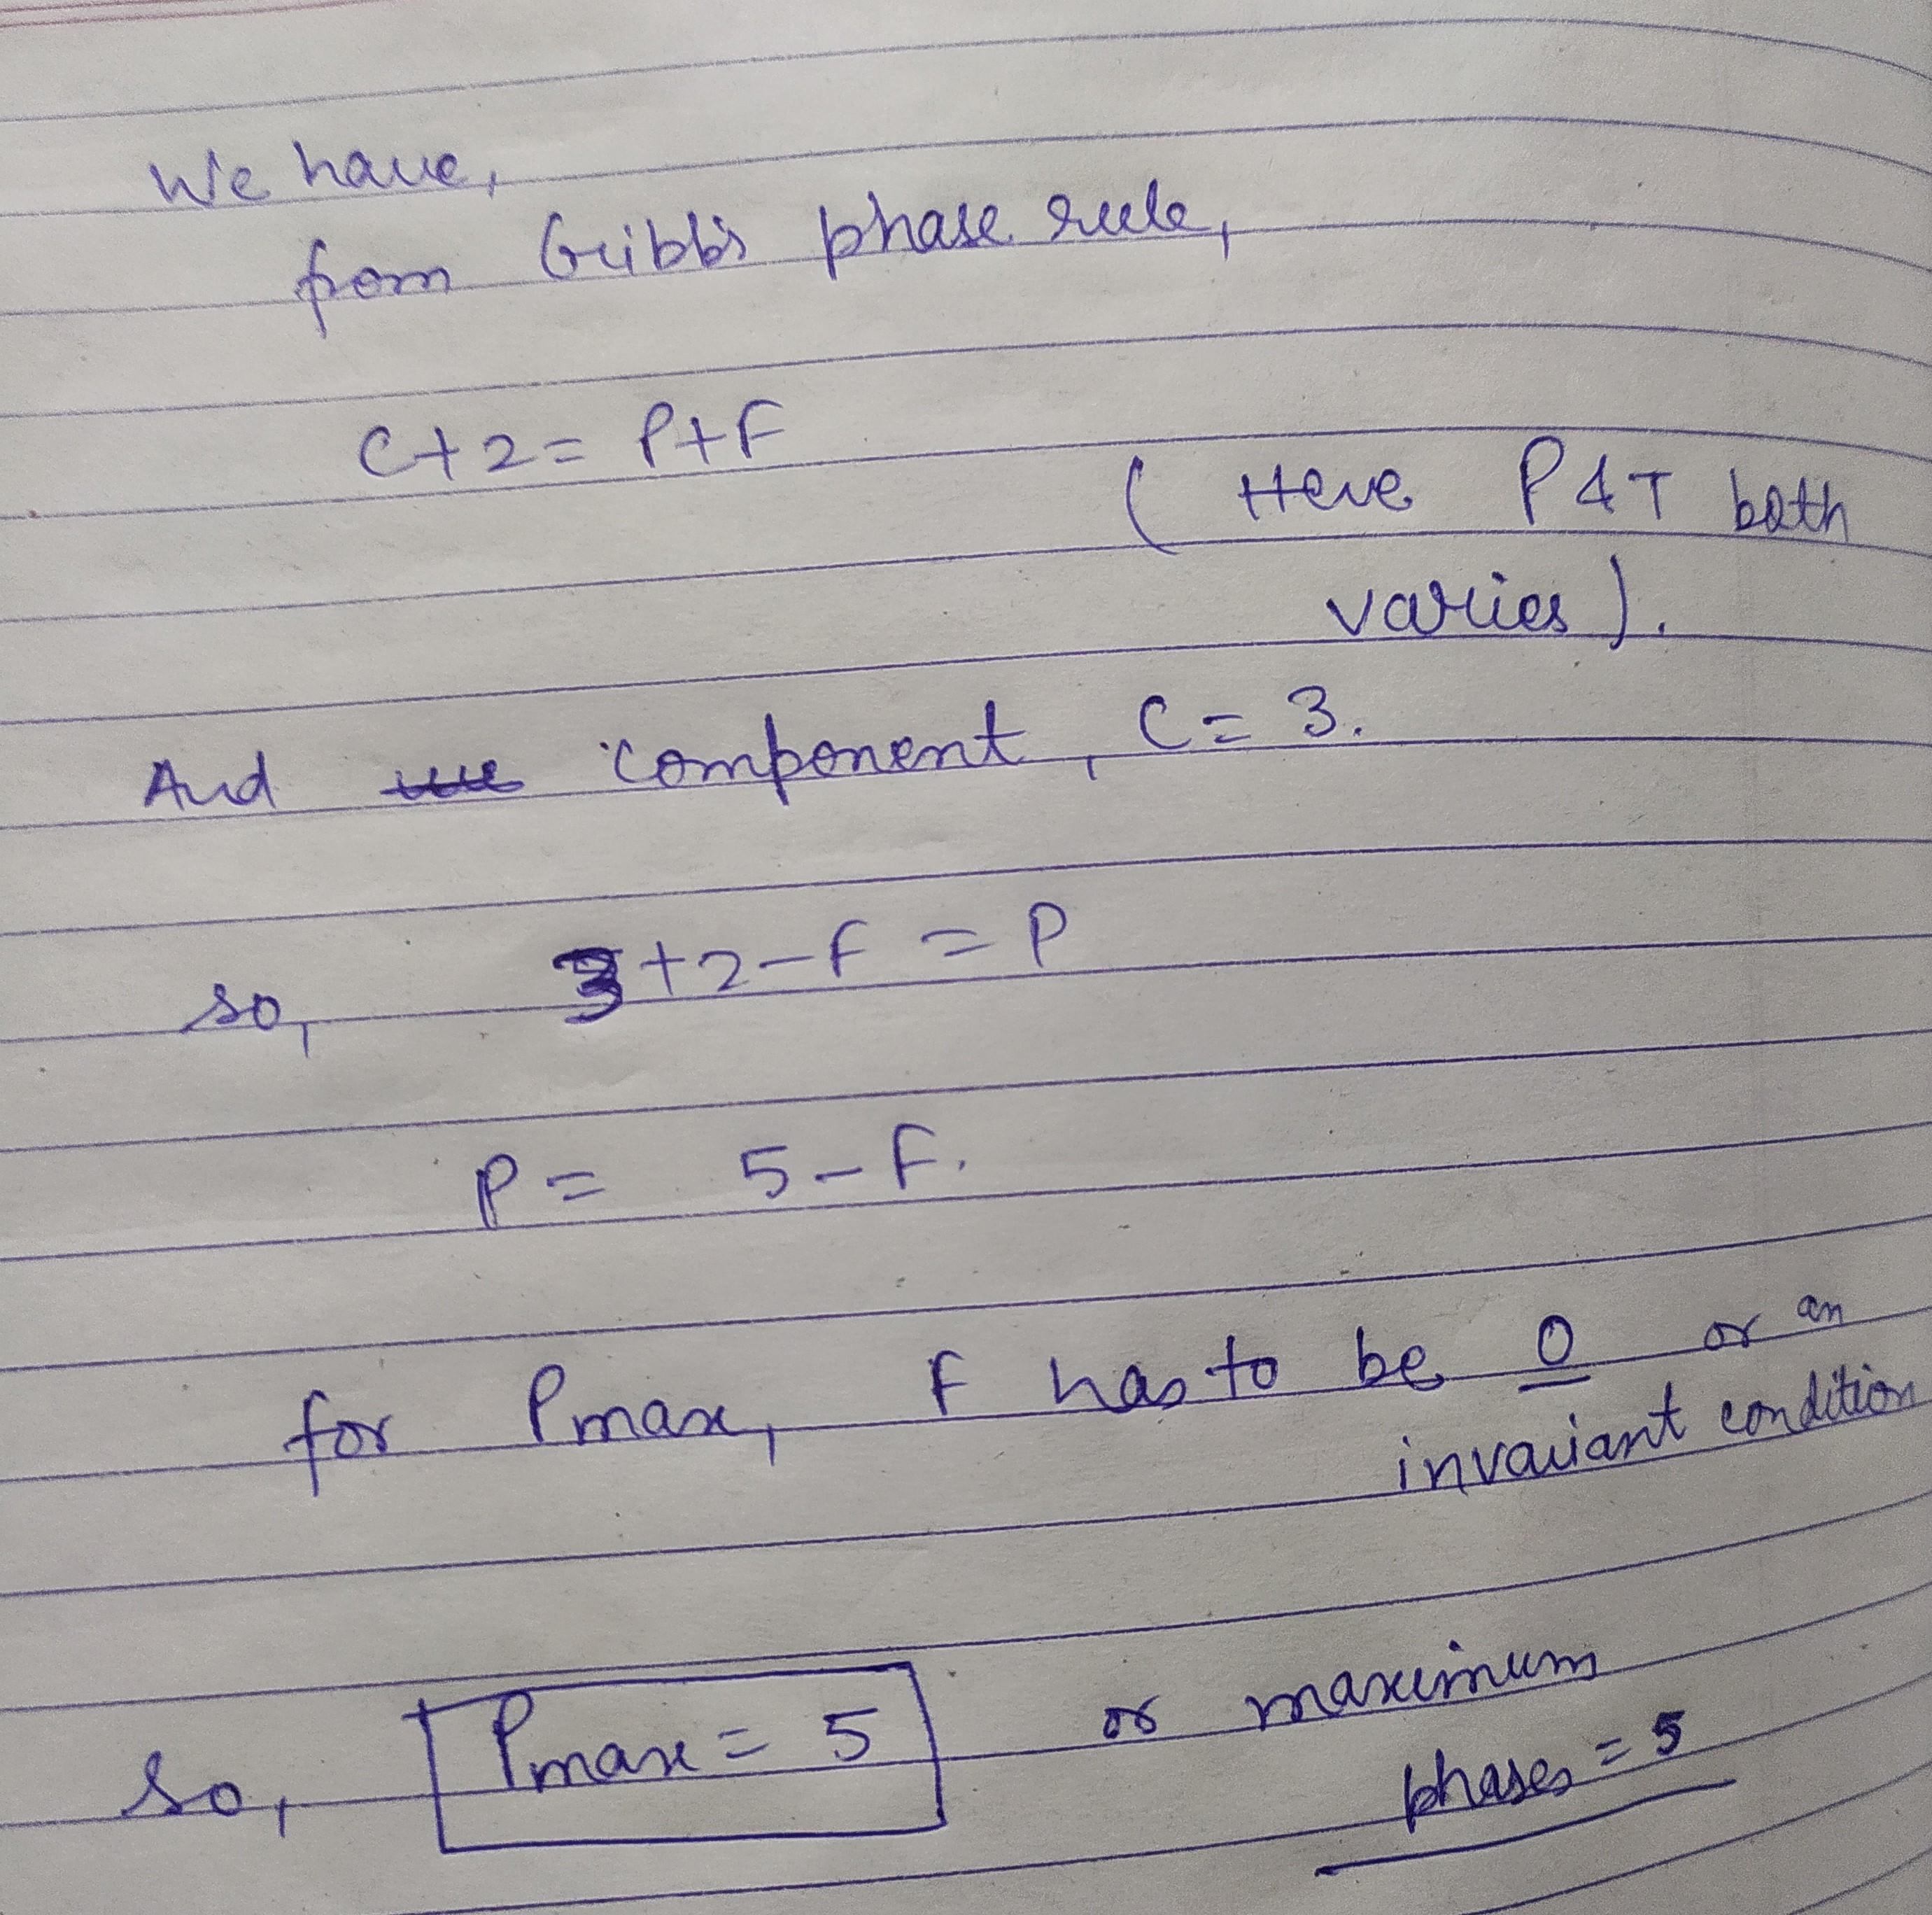 We have,
from Gibb's phase rule,
C+2 = P+F
( Here P & T both
varies ).
And component, C = 3.
so, 3+2-F = P
P = 5-F.
for Pmax, F has to be 0 or an
invariant condition
so, Pmax = 5 or maximum
phases = 5